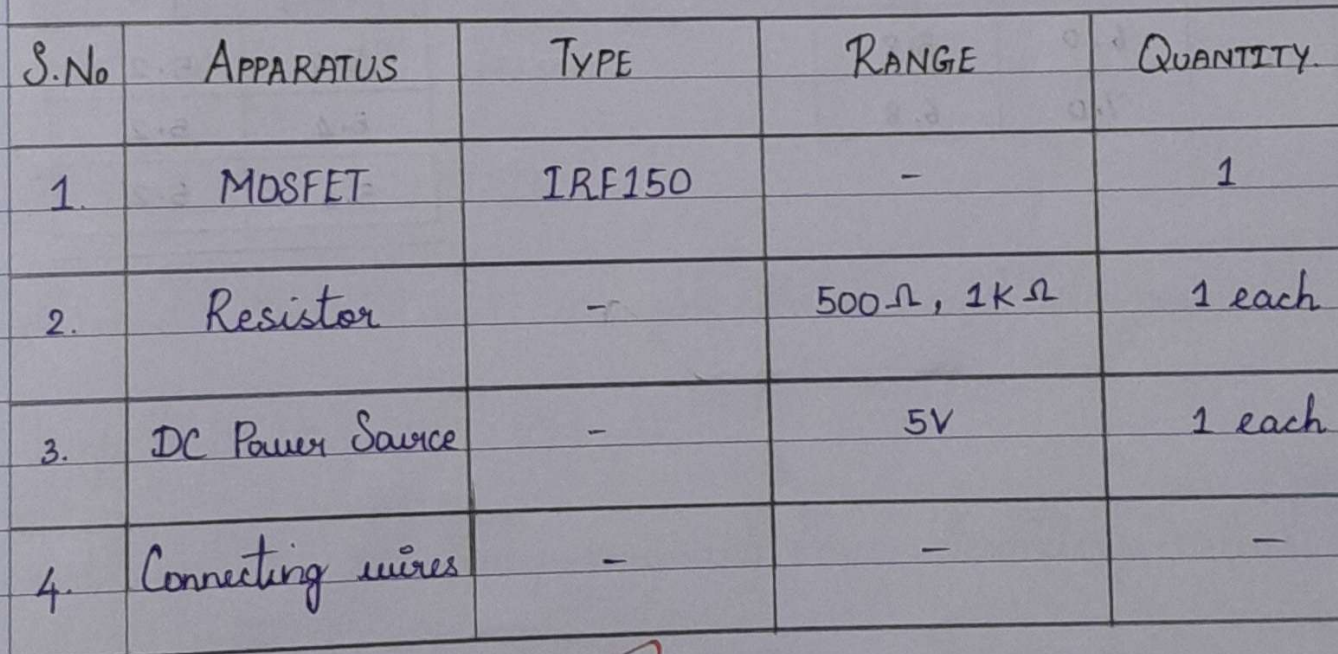 S.No APPARATUS TYPE RANGE QUANTITY.
1. MOSFET IRF150 - 1
2. Resistor - 500Ω, 1KΩ 1 each
3. DC Power Source - 5V 1 each
4. Connecting wires - - -